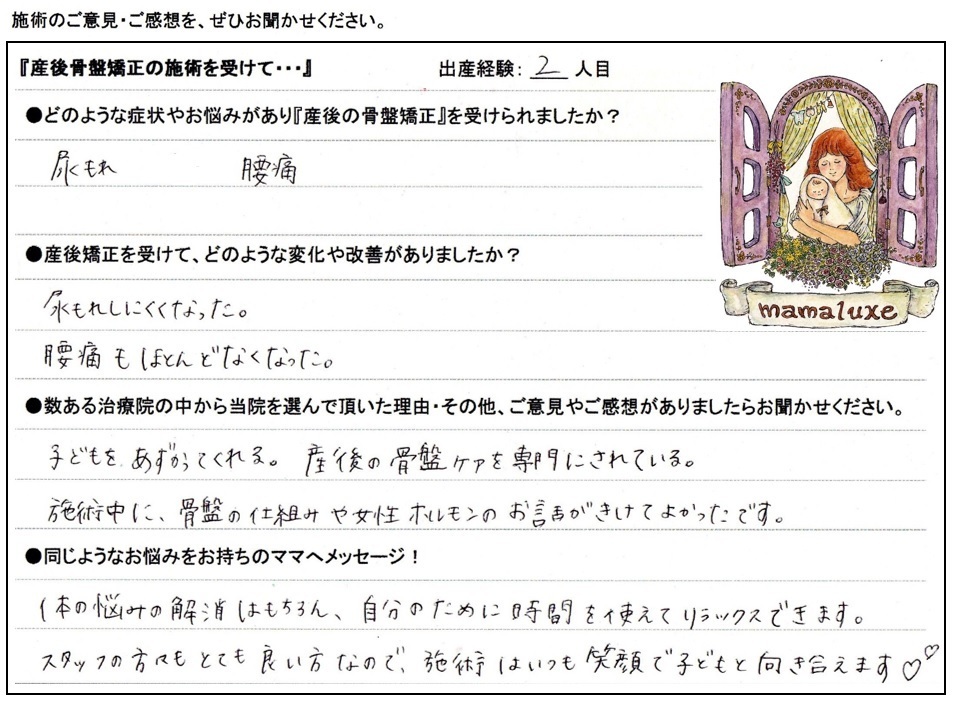 施術のご意見・ご感想を、ぜひお聞かせください。
『産後骨盤矯正の施術を受けて・・・』 出産経験：2人目
●どのような症状やお悩みがあり『産後の骨盤矯正』を受けられましたか？
尿もれ 腰痛
●産後矯正を受けて、どのような変化や改善がありましたか？
尿もれしにくくなった。
mamaluxe
腰痛もほとんどなくなった。
●数ある治療院の中から当院を選んで頂いた理由・その他、ご意見やご感想がありましたらお聞かせください。
子どもをあずかってくれる。産後の骨盤ケアを専門にされている。
施術中に、骨盤の仕組みや女性ホルモンのお話がきけてよかったです。
●同じようなお悩みをお持ちのママへメッセージ！
体の悩みの解消はもちろん、自分のために時間を使えてリラックスできます。
スタッフの方々もとても良い方なので、施術はいつも笑顔で子どもと向き合えます♡♡